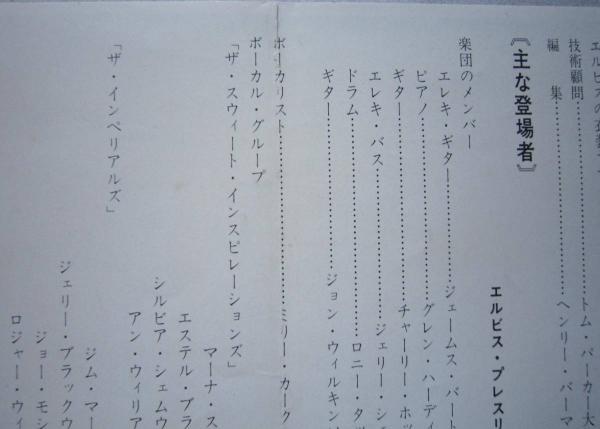 技術顧問……トム・パーカー大
編　集……ヘンリー・バーマ
〘主な登場者〙
エルビス・プレスリ
楽団のメンバー
エレキ・ギター……ジェームス・バート
ピアノ……グレン・ハーディ
ギター……チャーリー・ホッ
エレキ・バス……ジェリー・シェ
ドラム……ロニー・タッ
ギター……ジョン・ウィルキン
ボーカリスト……ミリー・カーク
ボーカル・グループ
「ザ・スウィート・インスピレーションズ」
マーナ・ス
エステル・ブラ
シルビア・シェムウ
アン・ウィリア
「ザ・インペリアルズ」
ジム・マー
ジェリー・ブラックウ
ジョー・モシ
ロジャー・ウィ